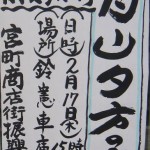 山夕方
日時 2月17日(木)15時
場所 鈴憲車庫
宮町商店街振興